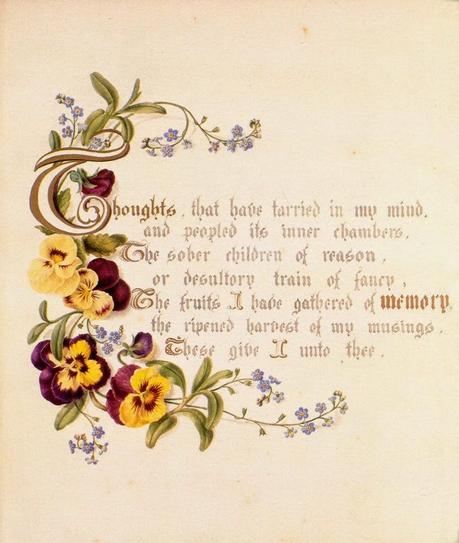 Thoughts, that have tarried in my mind,
and peopled its inner chambers,
The sober children of reason,
or desultory train of fancy,
The fruits I have gathered of memory,
the ripened harvest of my musings,
These give I unto thee.